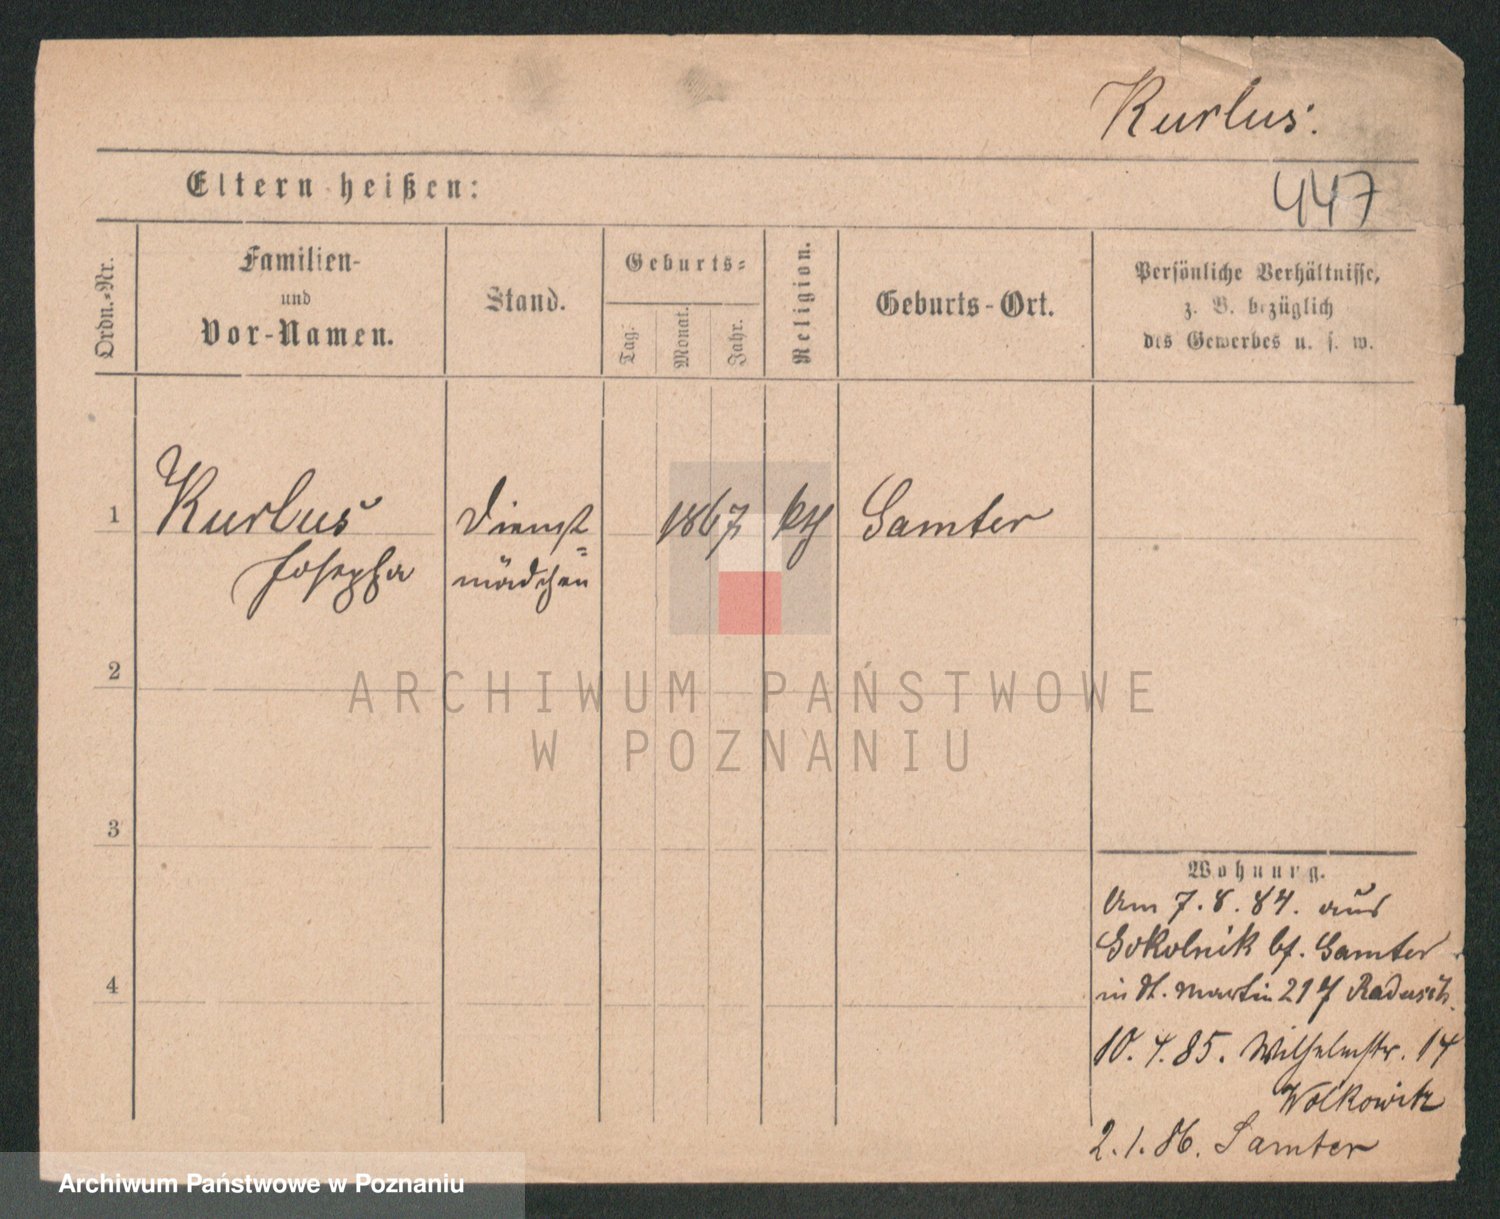 Kurlus.
Eltern heißen:
447
Ordn.-Nr.
Familien-
und
Vor-Namen.
Stand.
Geburts-
Tag.
Monat.
Jahr.
Religion.
Geburts-Ort.
Persönliche Verhältnisse,
z. B. bezüglich
des Gewerbes u. s. w.
1
Kurlus
Josepha
Dienst-
mädchen
1867
kth
Samter
2
3
4
Wohnung.
Am 7.8.84. aus
Sokolnik bf. Samter
in St. Martin 21 Radusch
10.4.85. Wilhelmstr. 14
Wolkowitz
2.1.86. Samter
ARCHIWUM PAŃSTWOWE
W POZNANIU
Archiwum Państwowe w Poznaniu